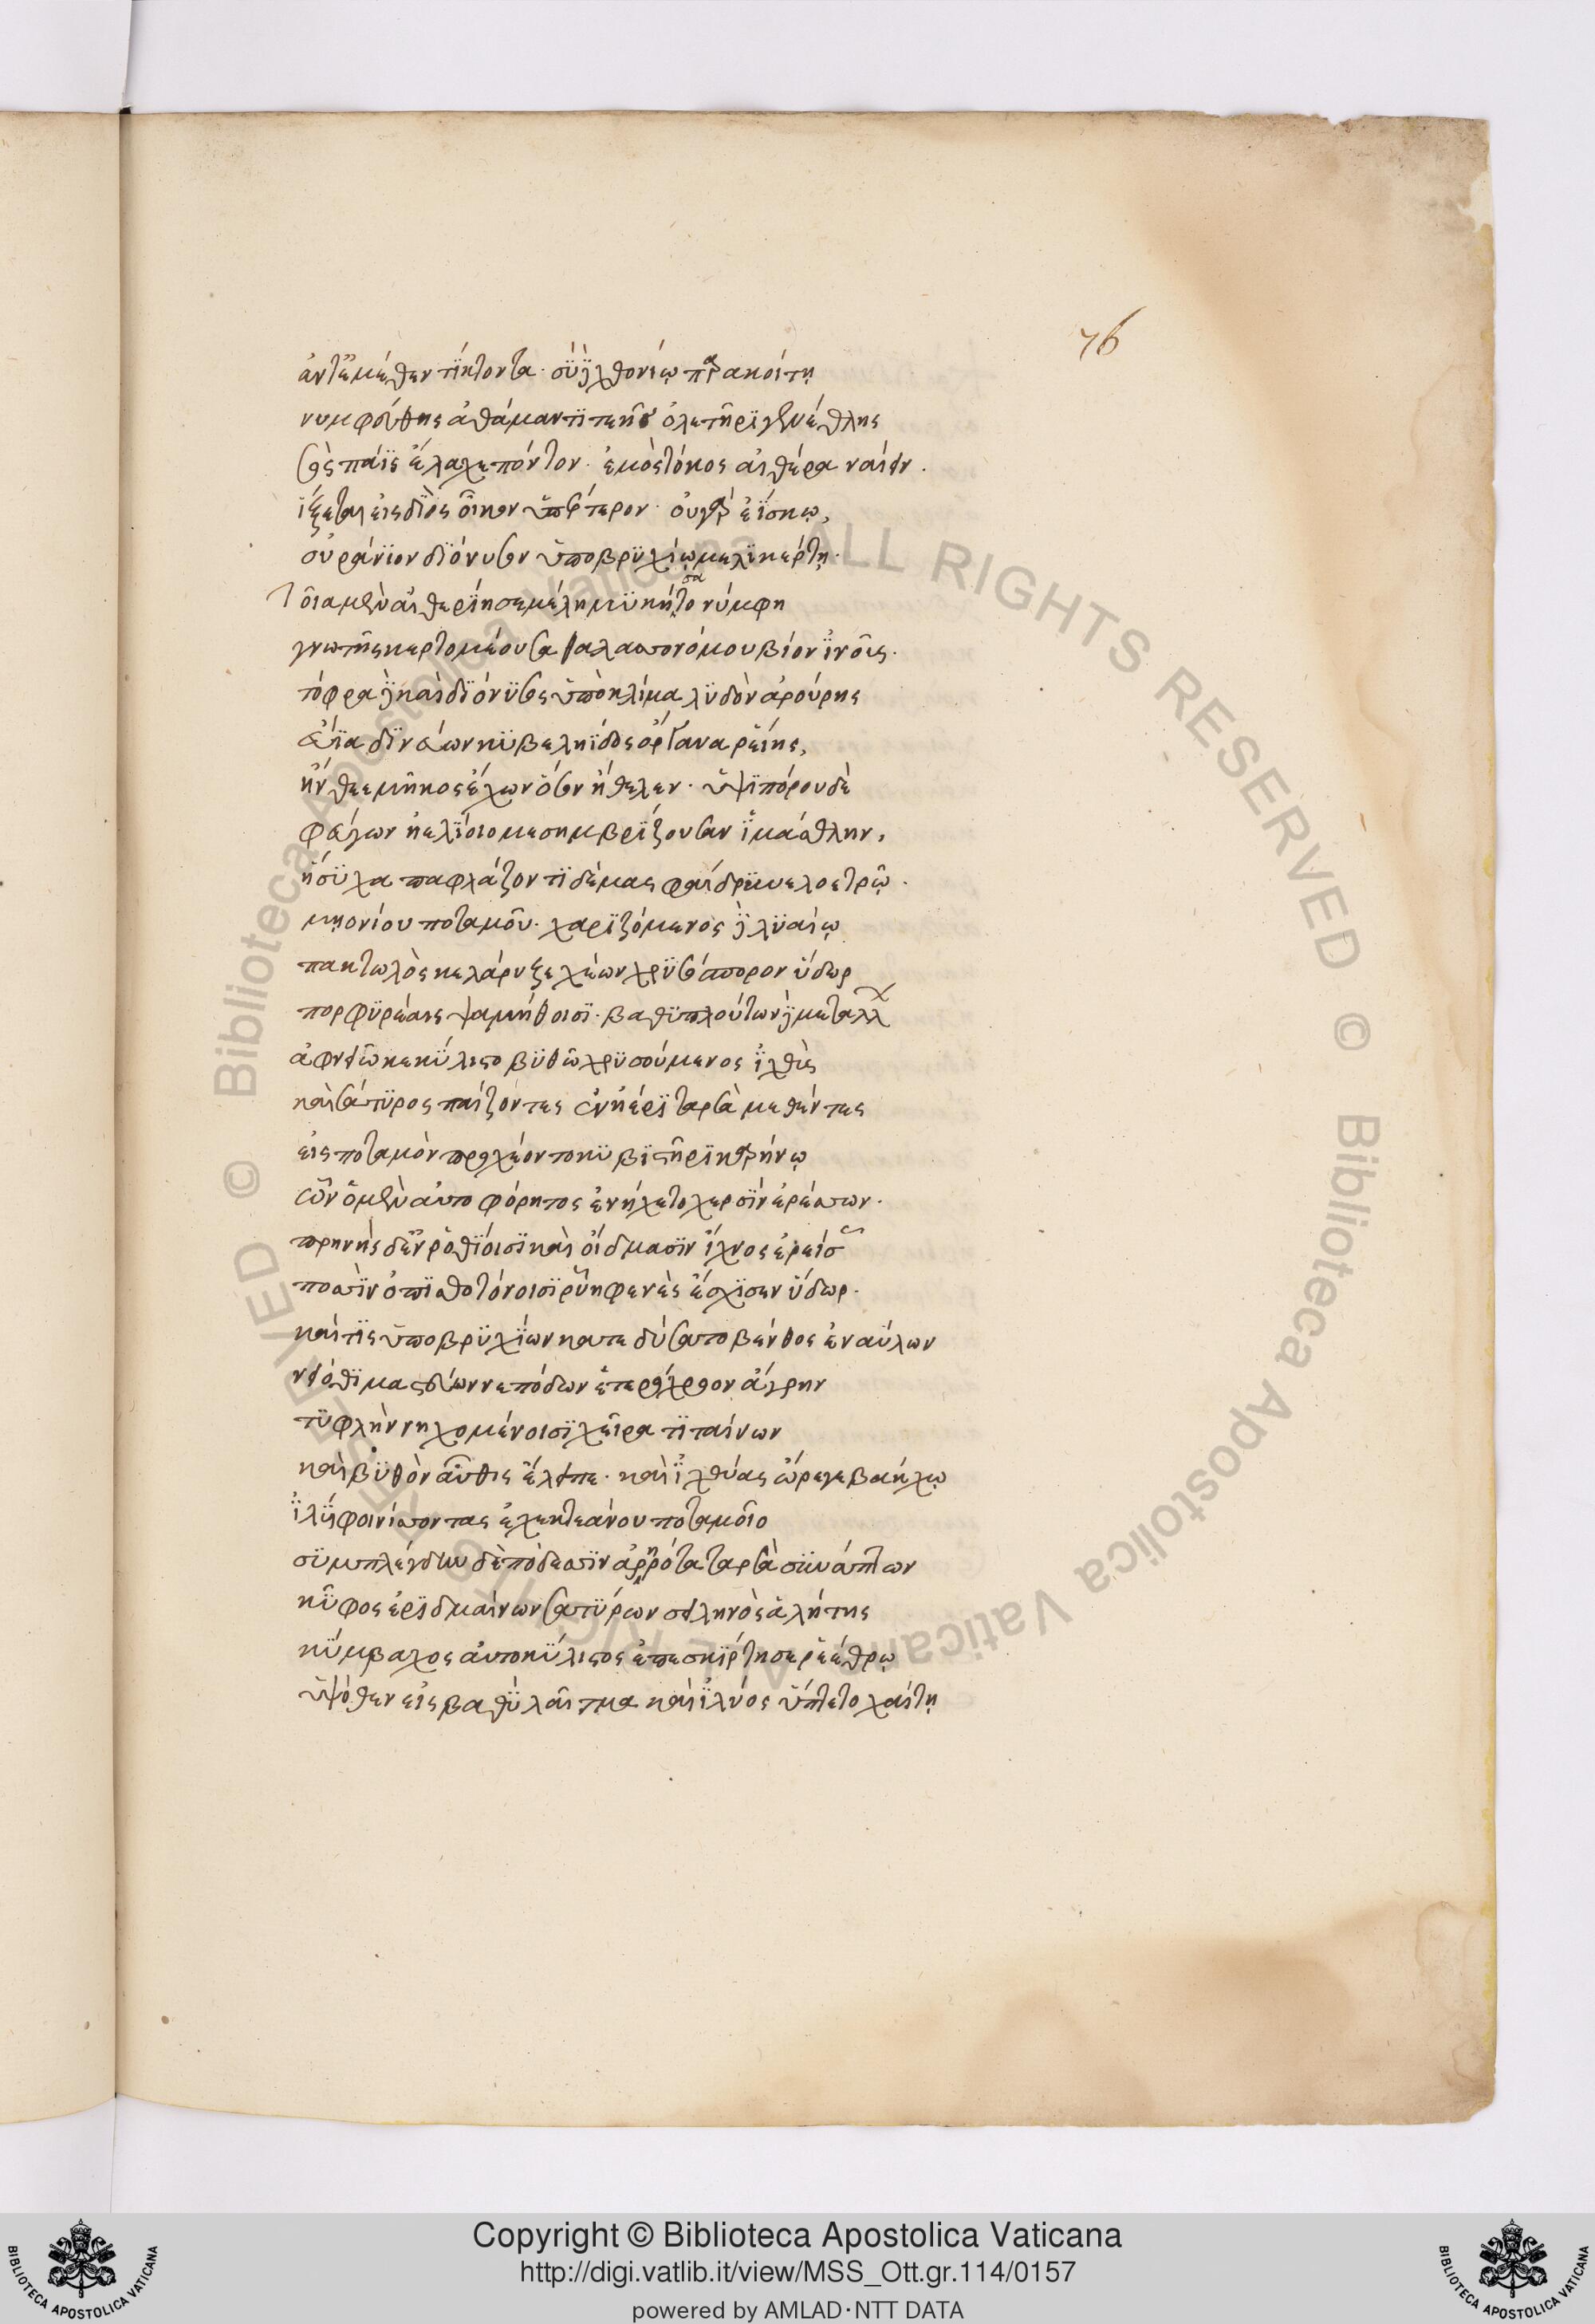 76
ἀντ' ἐμέθεν τίκτοντα· σὺ δὲ χθονίῳ παρακοίτῃ
νυμφεύθης ἀθάμαντι τεῆς ὀλετῆρι γενέθλης
σὸς πάϊς ἔλαχε πόντον· ἐμὸς τόκος αἰθέρα ναίειν.
ἵξεται εἰς διὸς οἶκον ὑπέρτερον· οὐ γὰρ ἐΐσκω,
οὐράνιον διόνυσον ὑποβρυχίῳ μελικέρτῃ.
τοῖα μὲν αἰθερίη σεμέλη μυκήσατο νύμφη
γνωτῆς κερτομέουσα θαλασσονόμου βίον ἰνοῦς.
τόφρα δὲ καὶ διόνυσος ὑπὸ κλίμα λυδὸν ἀρούρης
δινεύων κυβεληΐδος ὄργανα ῥείης,
ἦν θεεμῆκος ἔχων ὅσον ἤθελεν· ὑψιπόρου δὲ
φεύγων ἠελίοιο μεσημβρίζουσαν ἱμάσθλην,
ἥσυχα παφλάζοντι δέμας φαίδρυνε λοετρῷ.
μῃονίου ποταμοῦ· χαριζόμενος δὲ λυαίῳ
πακτωλὸς κελάρυζε χέων χρυσόσπορον ὕδωρ
πορφυρέαις ψαμάθοισι· βαθυπλούτων δὲ μετάλλων
ἀφνειῷ κεκύλιστο βυθῷ χρυσούμενος ἰχθύς
καὶ σάτυρος παίζοντες ἐν ἠέρι ταρσὰ μεθέντες
εἰς ποταμὸν προχέοντο κυβιστητῆρι καρήνῳ
ὧν ὁ μὲν αὐτοφόρητος ἐνήχετο χερσὶν ἐρέσσων.
πρηνὴς δ' ἐν ῥοθίοισι καὶ οἴδμασιν ἴχνος ἐρείσας
ποσσὶν ὀπισθοτόνοισι ῥυηφενὲς ἔσχισεν ὕδωρ.
καί τις ὑποβρυχίων κατεδύσατο βένθος ἐναύλων
νειόθι μαστεύων νεπόδων ἑτερόχροον ἄγρην
τυφλὴν νηχομένοισι χεῖρα τιταίνων
καὶ βυθὸν αὖθις ἔλειπε· καὶ ἰχθύας ὤρεγε βάκχῳ
ἰλύϊ φοινίσσοντας ἐχεκτεάνου ποταμοῖο
συμπλέγδην δὲ πόδεσσιν ὁμόρροτα ταρσὰ συνάπτων
κῦφος ἐριδμαίνων σατύρων σειληνὸς ἀλήτης
κύμβαχος αὐτοκύλιστος ἐπεσκίρτησε ῥεέθρῳ
ὑψόθεν εἰς βαθὺ λαῖτμα καὶ ἰλύος ὕπτετο χαίτη
Copyright © Biblioteca Apostolica Vaticana
http://digi.vatlib.it/view/MSS_Ott.gr.114/0157
powered by AMLAD·NTT DATA
BIBLIOTECA APOSTOLICA VATICANA
BIBLIOTECA APOSTOLICA VATICANA
© Biblioteca Apostolica Vaticana ALL RIGHTS RESERVED © Biblioteca Apostolica Vaticana ALL RIGHTS RESERVED